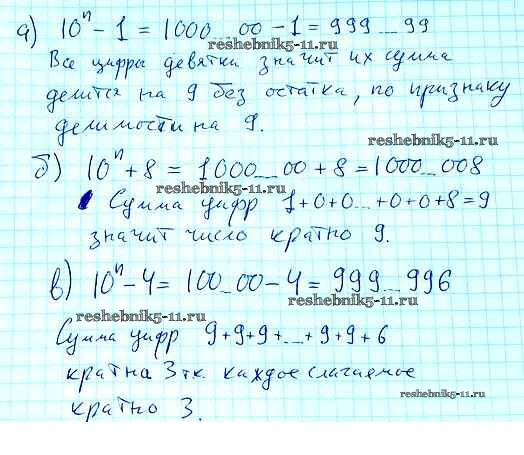 а) 10ⁿ - 1 = 1000...00 - 1 = 999...99
reshebnik5-11.ru
Все цифры девятки значит их сумма
делится на 9 без остатка, по признаку
делимости на 9.
reshebnik5-11.ru
б) 10ⁿ + 8 = 1000...00 + 8 = 1000...008
reshebnik5-11.ru
Сумма цифр 1+0+0...+0+0+8=9
значит число кратно 9.
в) 10ⁿ - 4 = 100...00 - 4 = 999...996
reshebnik5-11.ru
reshebnik5-11.ru
Сумма цифр 9+9+9+...+9+9+6
кратна 3 т.к. каждое слагаемое
reshebnik5-11.ru
кратно 3.